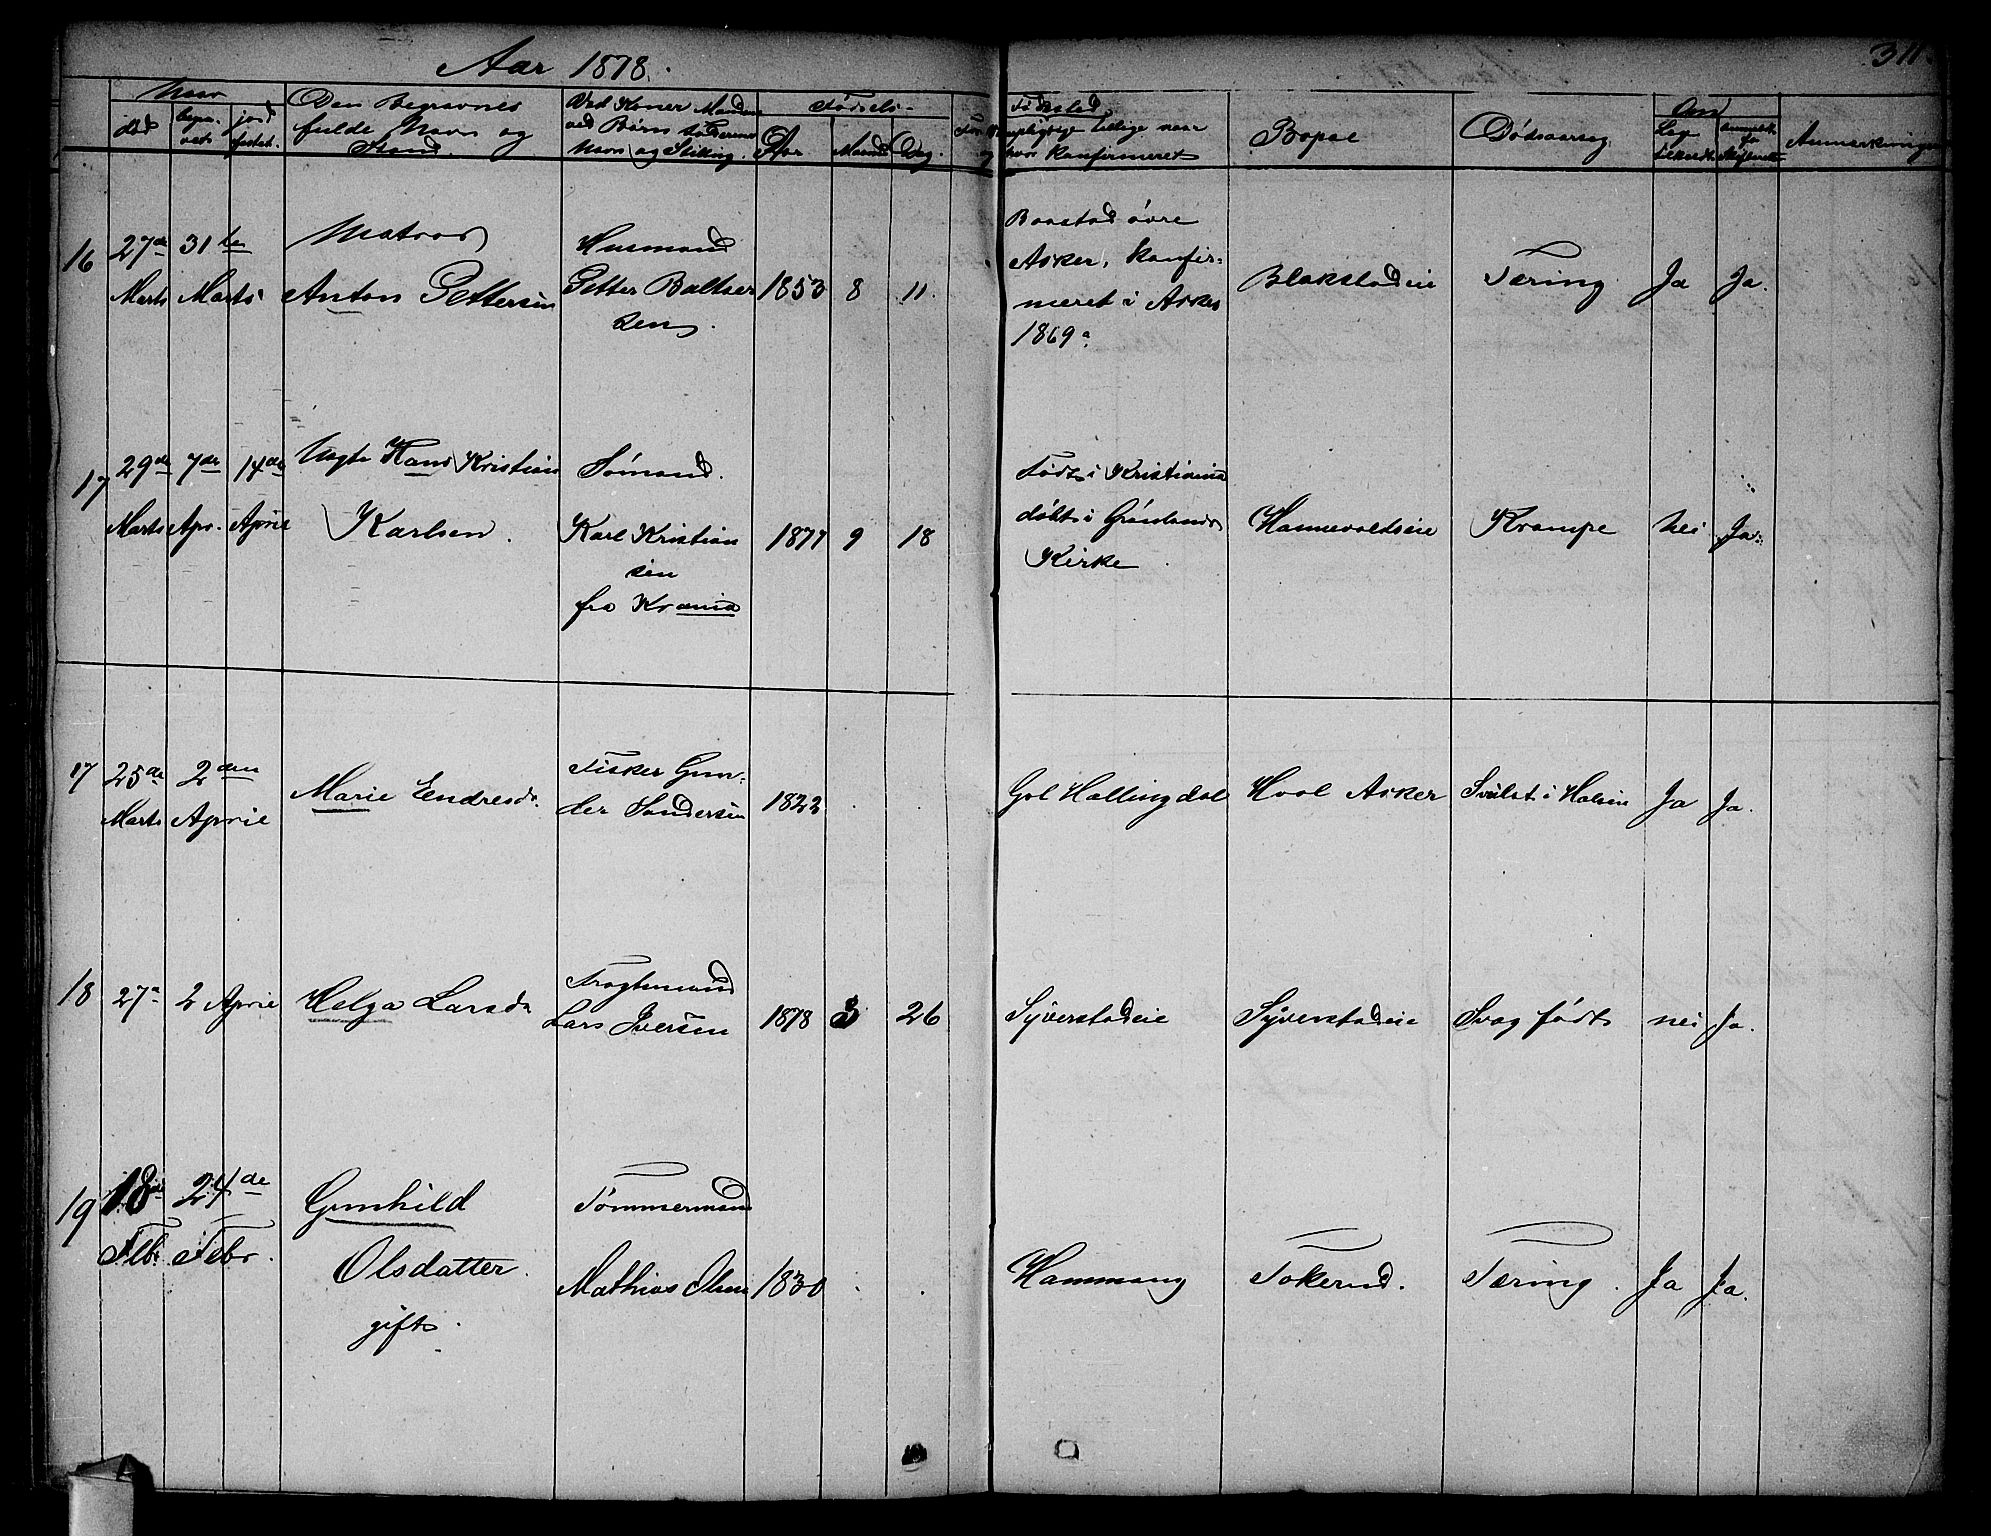 Aar 1878.
311.
Naar
død
begra-
vet
jord
fæstet.
Den Begravnes
fulde Navn og
Stand.
Ved Koner Mandens
ved Børn Faderens
Navn og Stilling.
Fødsels-
Aar
Maaned
Dag.
Fødested
tillige naar
hvor Konfirmeret
Bopæl
Dødsaarsag
Om
Anmærkninger
16
27de
Marts
31te
Marts
Matros
Anton Pettersen
Husmand
Petter Baltser
sen.
1853
8
11.
Baastad øvre
Asker, Konfir-
meret i Asker
1869.
Blakstadeie
Tæring
Ja
Ja.
17
29de
Marts
7de
Apr.
14de
April
Ungte Hans Kristian
Karlsen.
Sømand.
Karl Kristian
sen
fra Krania
1877
9
18
Født i Kristiania
døbt i Grønlands
Kirke
Hannevoldseie
Krampe
nei
Ja.
17
25de
Marts
2den
April
Marie Endresdr.
Fisker Gun-
der Sandersen
1822
Gol Hallingdal
Hval Asker
Svulst i Halsen
Ja
Ja.
18
27de
2 April
Helga Larsdr
Fragtemand
Lars Iversen
1878
3
26
Syverstadeie
Syverstadeie
Svag født
nei
Ja.
19
18de
Feb.
24de
Febr.
Gunhild
Olsdatter
gift.
Tømmermand
Mathias Olsen
1830
Hammang
Tokerud.
Tæring.
Ja
Ja.